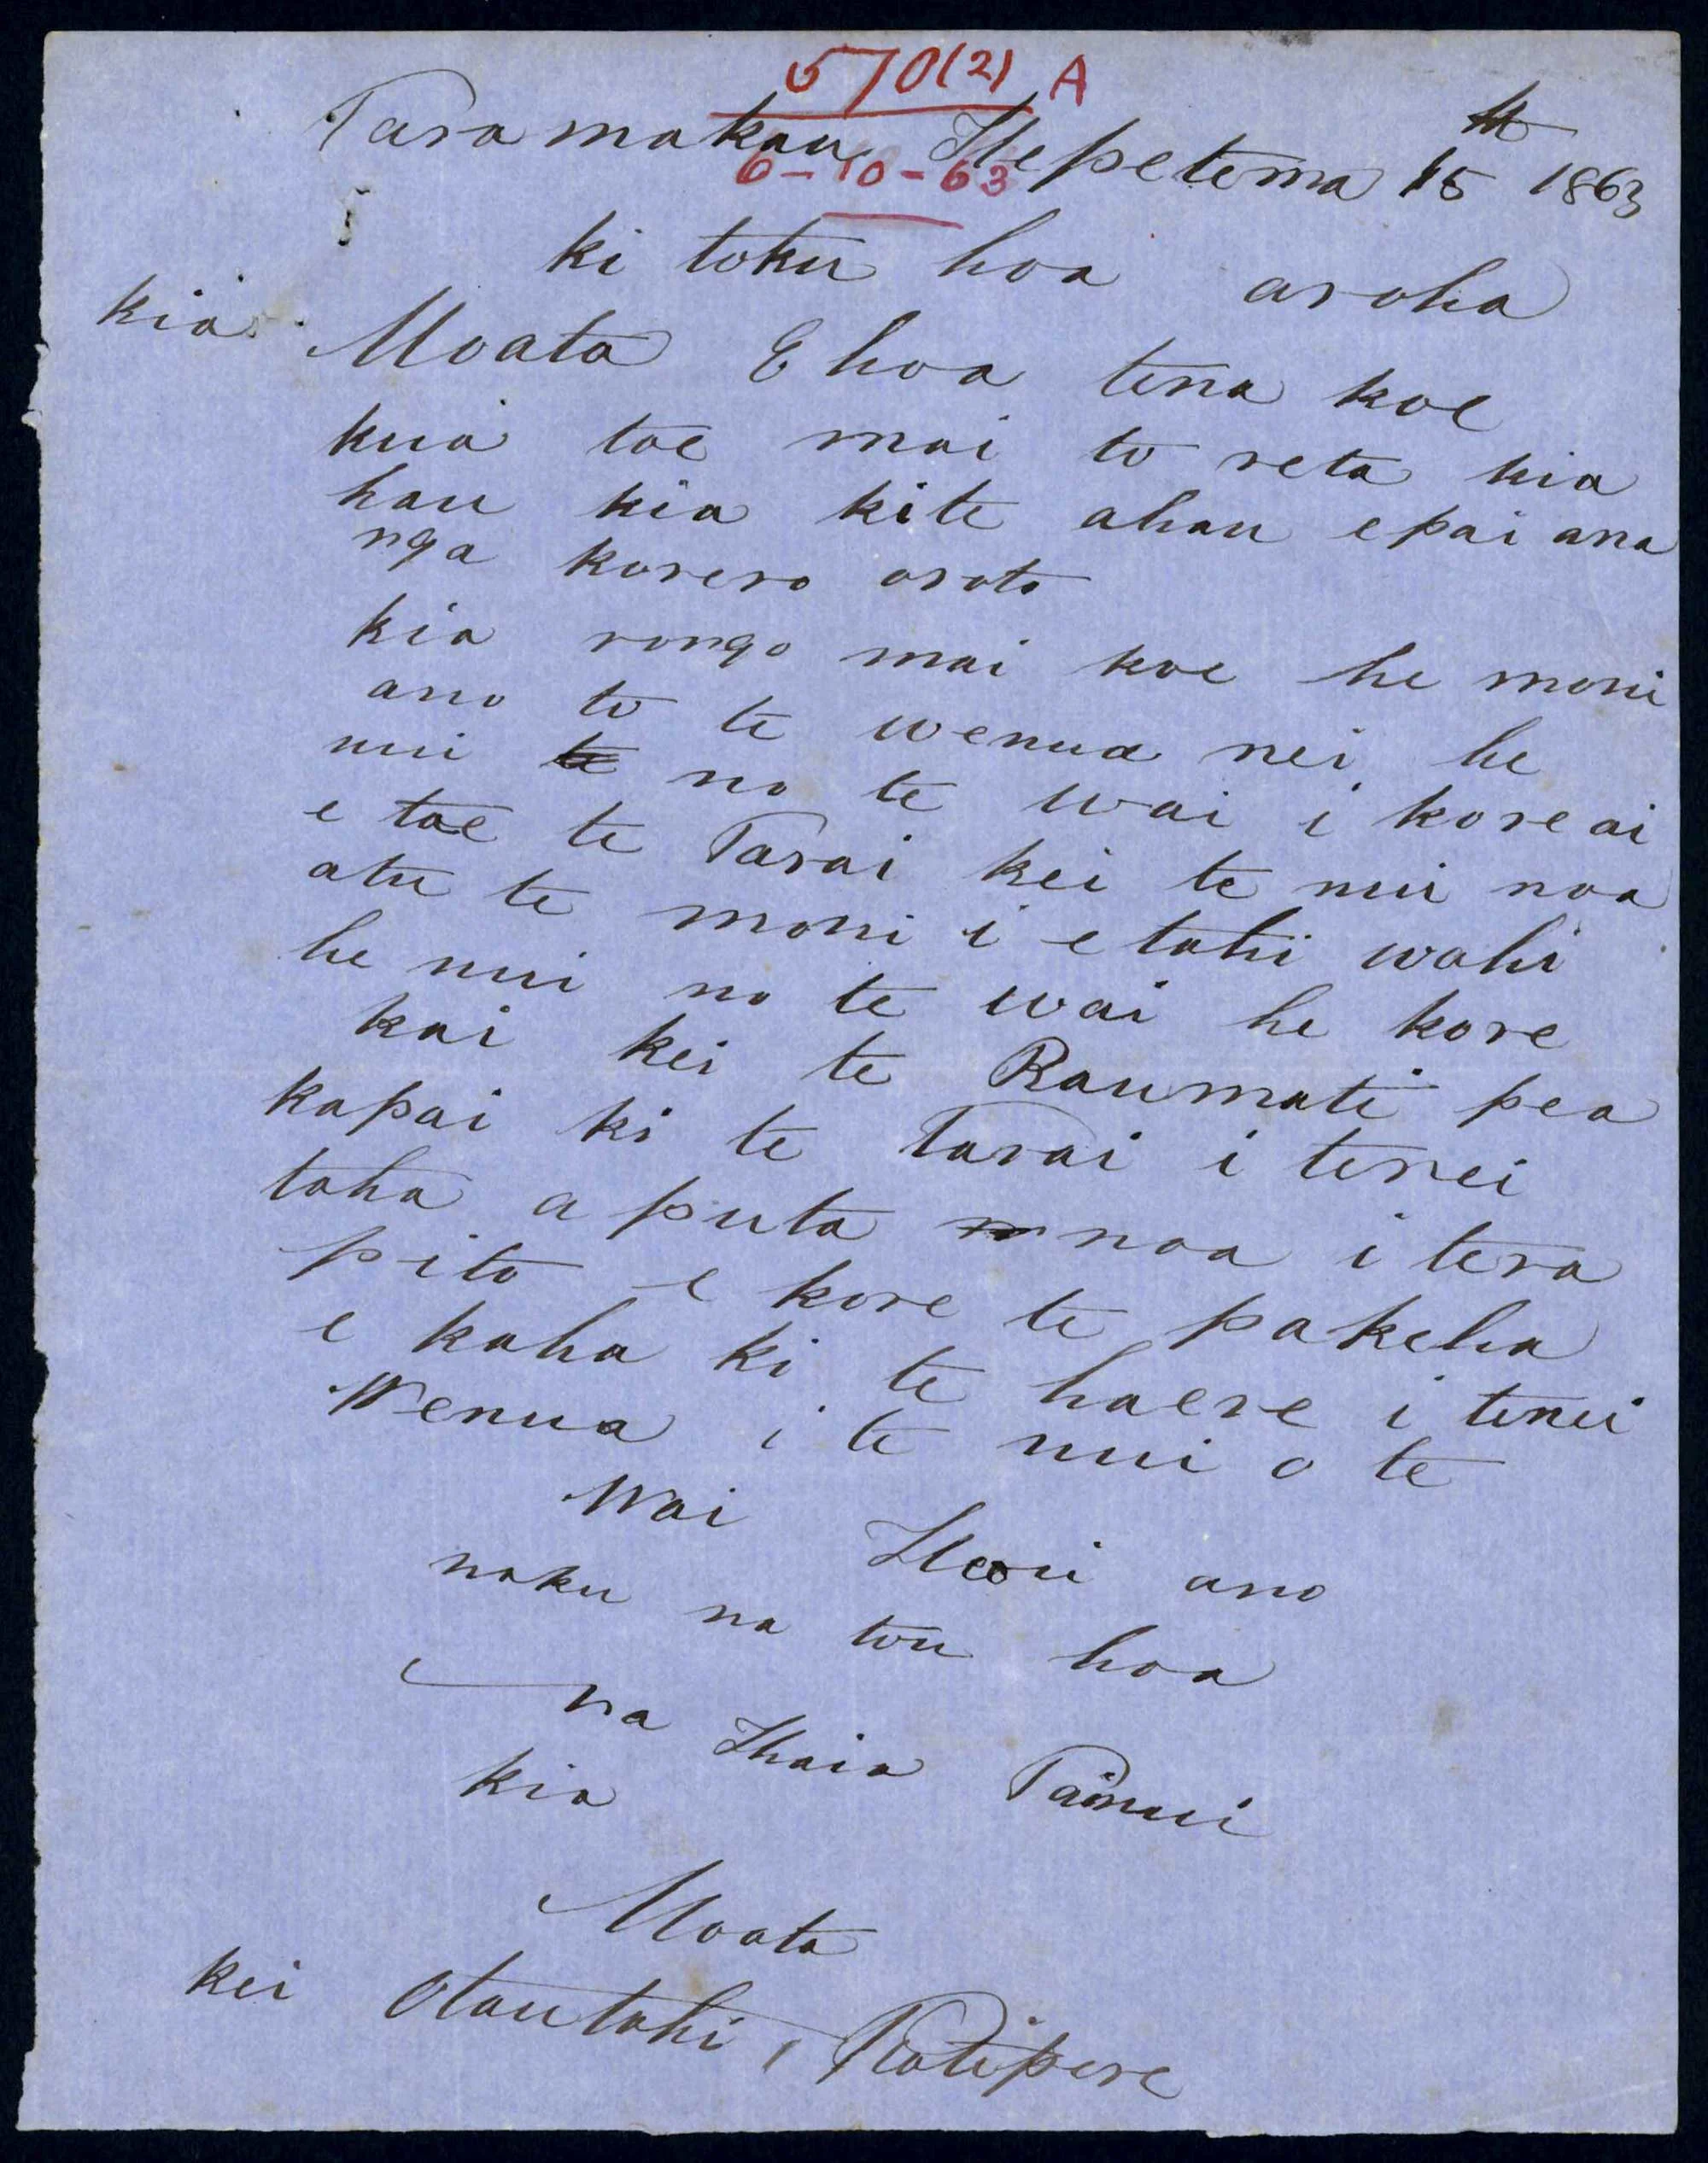 570(2) A
Taramakau Hepetema 15 1863
6-10-63
ki toku hoa aroha
kia Moata E hoa tena koe
kua tae mai to reta kia
hau kia kite ahau e pai ana
nga korero oroto
kia rongo mai koe he moni
ano to te wenua nei he
nui te no te wai i kore ai
e tae te Tarai kei te nui noa
atu te moni i etahi wahi
he nui no te wai he kore
kai kei te Raumati pea
kapai ki te Tarai i tenei
taha a puta noa i tera
pito e kore te pakeha
e kaha ki te haere i tenei
Wenua i te nui o te
Wai Heoi ano
naku na tou hoa
na Ihaia Tainui
kia
Moata
kei Otautahi, Ratipere